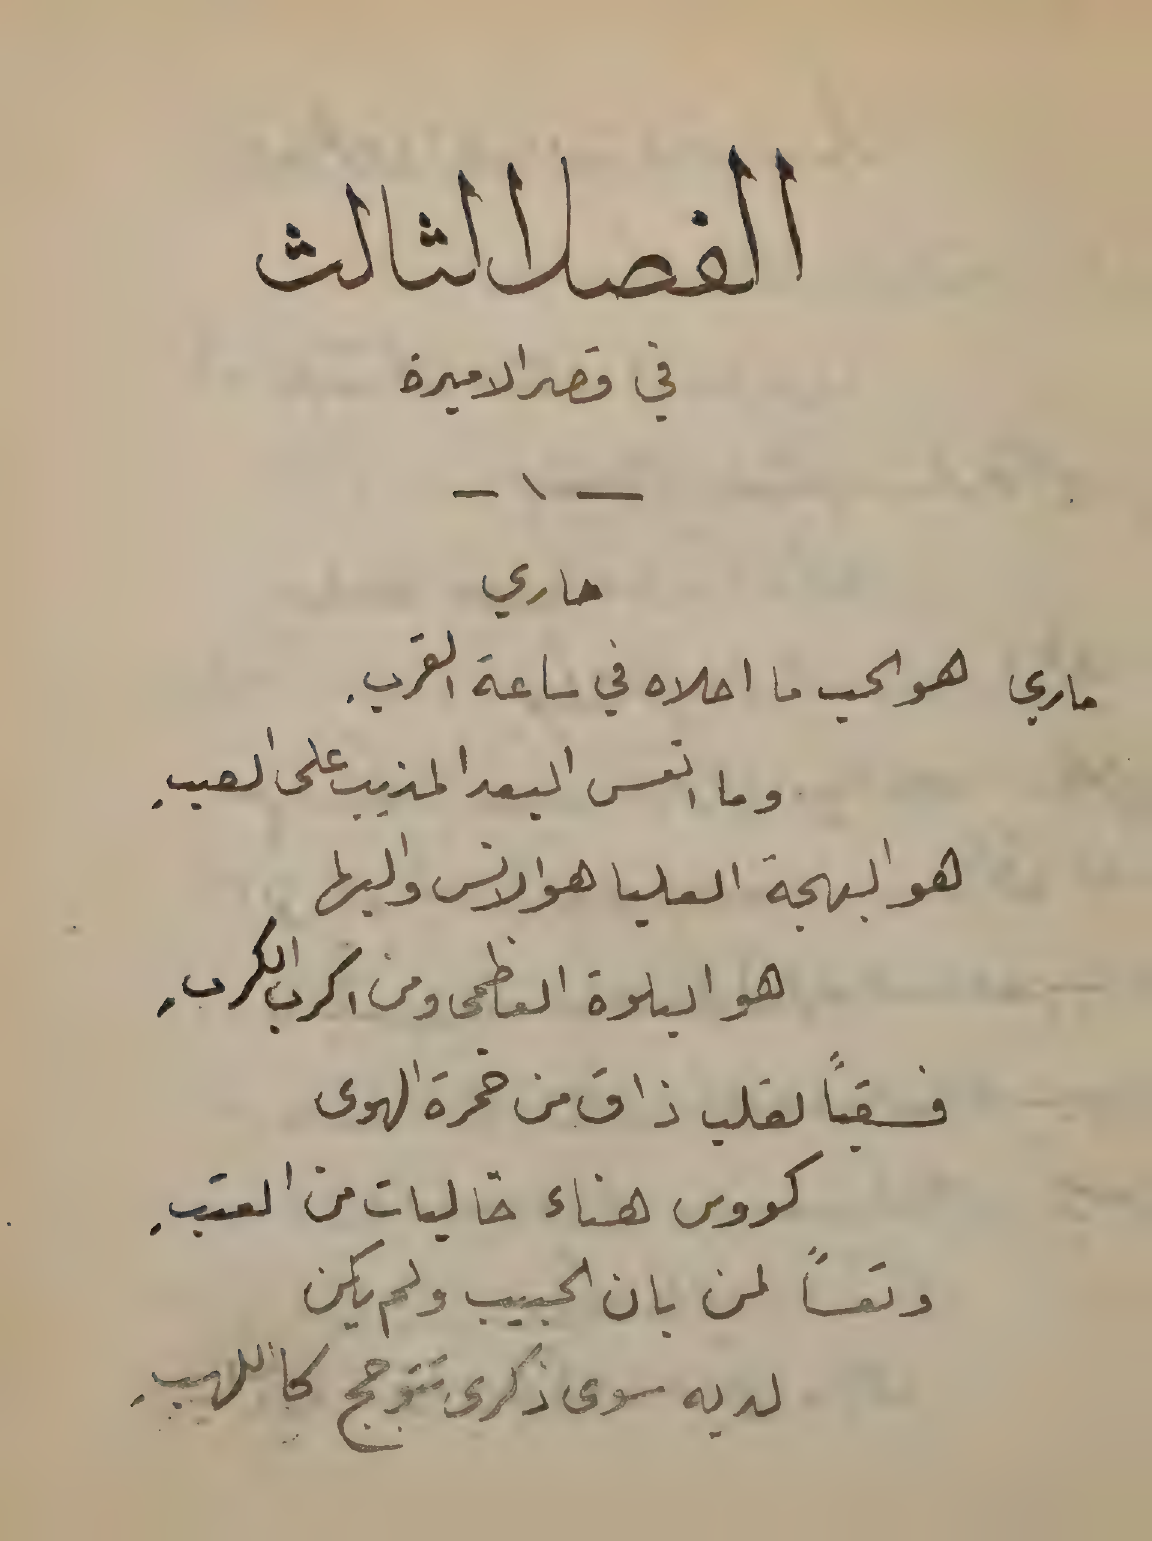 الفصل الثالث
في قصر الاميرة
— ١ —
ماري
ماري هو الحب ما احلاه في ساعة القربِ
وما اتعس البعد المذيب على الصبِ
هو البهجة العليا هو الانس والبها
هو البلوة العظمى ومن اكرب الكربِ
فسقياً لقلب ذاق من خمرة الهوى
كووس هناء خاليات من العتبِ
وتعساً لمن بان الحبيب ولم يكن
لديه سوى ذكرى تتوجج كاللهبِ